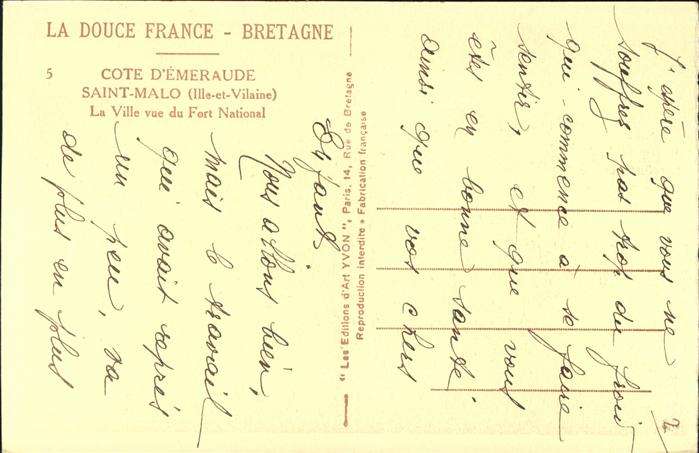 LA DOUCE FRANCE - BRETAGNE
5
COTE D'ÉMERAUDE
SAINT-MALO (Ille-et-Vilaine)
La Ville vue du Fort National
" Les Editions d'Art YVON ", Paris, 14, Rue de Bretagne
Reproduction interdite • Fabrication française
J'espère que vous ne
souffrez pas trop du froid
qui commence à se faire
sentir, et que vous
êtes en bonne santé
ainsi que vos chers
Enfants.
Nous allons bien,
mais le travail
qui avait repris
un peu, va
de plus en plus